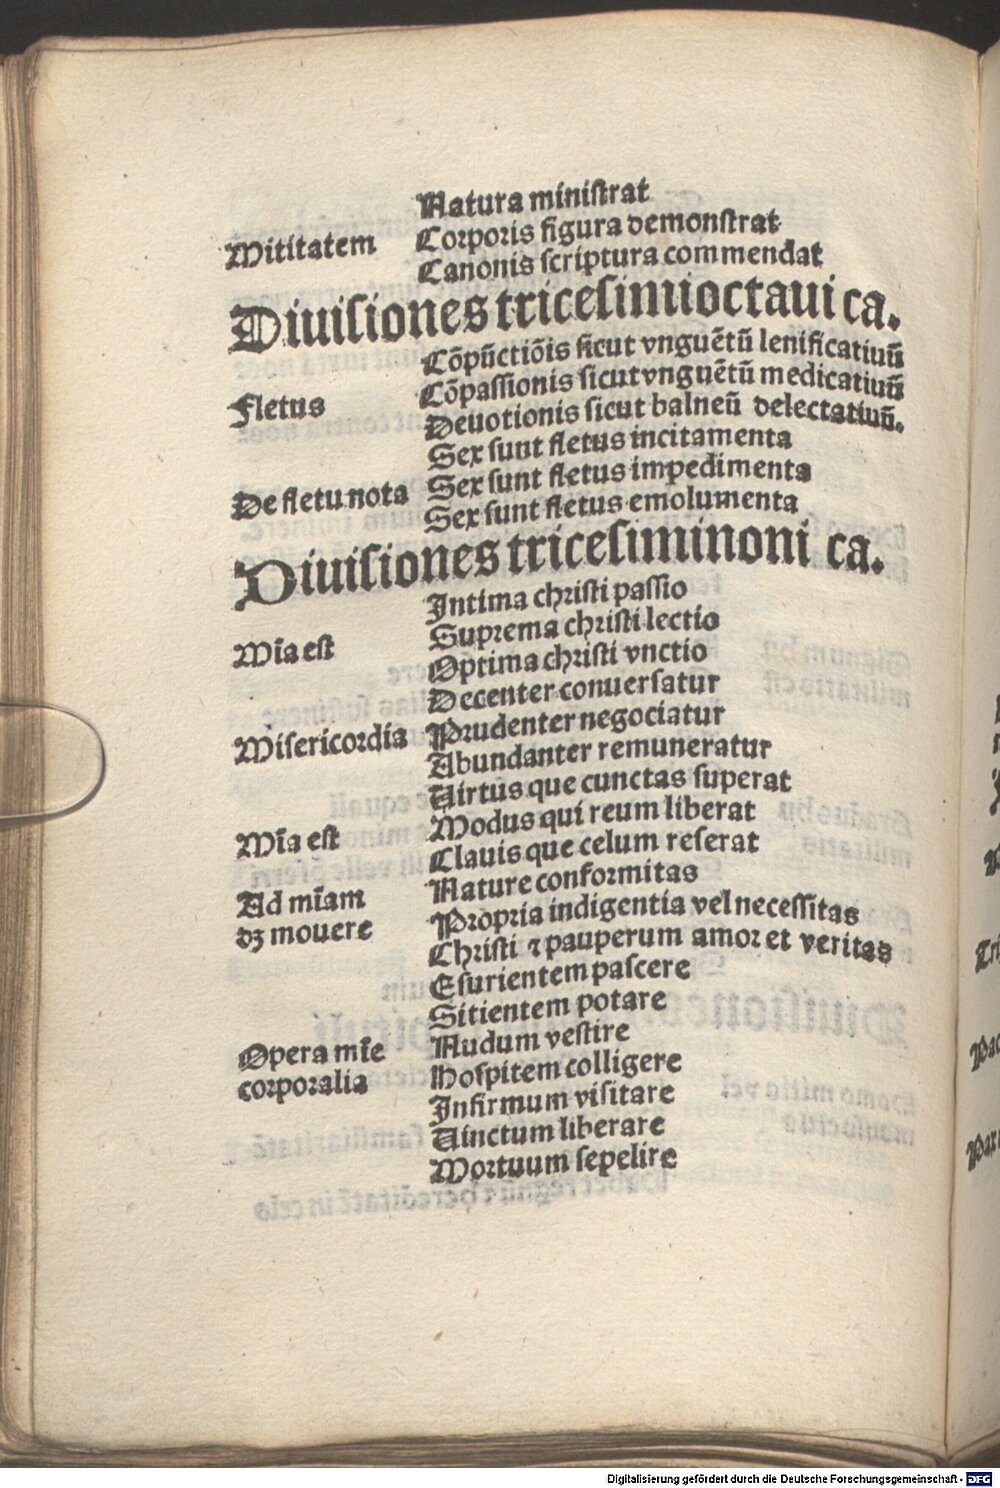 Natura ministrat
Mititatem Corporis figura demonstrat
Canonis scriptura commendat
Diuisiones tricesimioctaui ca.
Cōpūctiōis sicut vnguētū lenificatiuū
Fletus Cōpassionis sicut vnguētū medicatiuū
Deuotionis sicut balneū delectatiuū.
Sex sunt fletus incitamenta
De fletu nota Sex sunt fletus impedimenta
Sex sunt fletus emolumenta
Diuisiones tricesiminoni ca.
Intima christi passio
Mīa est Suprema christi lectio
Optima christi vnctio
Decenter conuersatur
Misericordia Prudenter negociatur
Abundanter remuneratur
Uirtus que cunctas superat
Mīa est Modus qui reum liberat
Clauis que celum reserat
Ad mīam Nature conformitas
dꝫ mouere Propria indigentia vel necessitas
Christi ⁊ pauperum amor et veritas
Esurientem pascere
Sitientem potare
Opera mīe Nudum vestire
corporalia Hospitem colligere
Infirmum visitare
Uinctum liberare
Mortuum sepelire
Digitalisierung gefördert durch die Deutsche Forschungsgemeinschaft - DFG